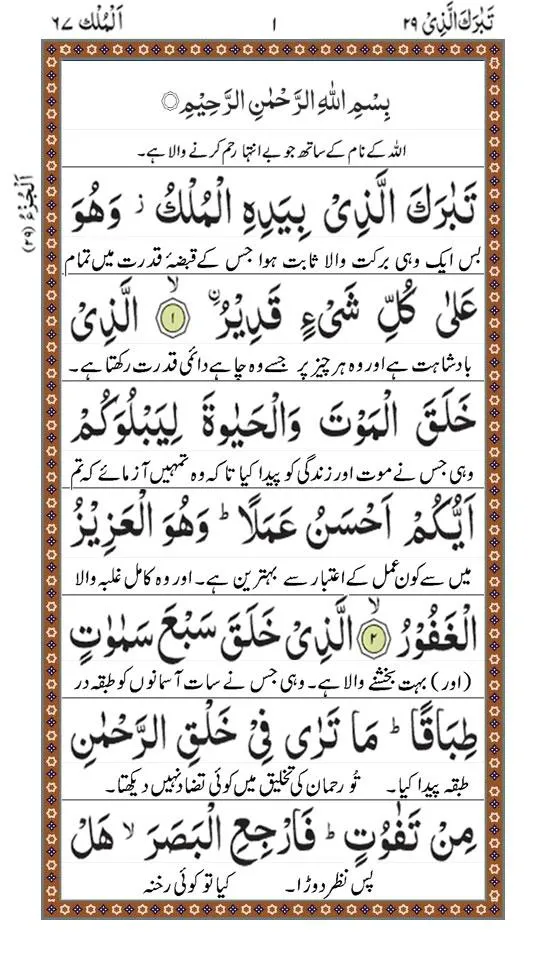 تَبٰرَكَ الَّذِیْ ۲۹ ۱ اَلْمُلْك ۶۷
اَلْجُزْءُ (۲۹)
بِسْمِ اللّٰهِ الرَّحْمٰنِ الرَّحِیْمِ
اللہ کے نام کے ساتھ جو بے انتہا رحم کرنے والا ہے۔
تَبٰرَكَ الَّذِیْ بِیَدِهِ الْمُلْكُ ز وَهُوَ
بس ایک وہی برکت والا ثابت ہوا جس کے قبضۂ قدرت میں تمام
عَلٰی كُلِّ شَیْءٍ قَدِیْرُ ۙ ۱ الَّذِیْ
بادشاہت ہے اور وہ ہر چیز پر جسے وہ چاہے دائمی قدرت رکھتا ہے۔
خَلَقَ الْمَوْتَ وَالْحَیٰوةَ لِیَبْلُوَكُمْ
وہی جس نے موت اور زندگی کو پیدا کیا تا کہ وہ تمہیں آزمائے کہ تم
اَیُّكُمْ اَحْسَنُ عَمَلًا ؕ وَهُوَ الْعَزِیْزُ
میں سے کون عمل کے اعتبار سے بہترین ہے۔ اور وہ کامل غلبہ والا
الْغَفُوْرُ ۙ ۲ الَّذِیْ خَلَقَ سَبْعَ سَمٰوٰتٍ
(اور) بہت بخشنے والا ہے۔ وہی جس نے سات آسمانوں کو طبقہ در
طِبَاقًا ؕ مَا تَرٰی فِیْ خَلْقِ الرَّحْمٰنِ
طبقہ پیدا کیا۔ تُو رحمان کی تخلیق میں کوئی تضاد نہیں دیکھتا۔
مِنْ تَفٰوُتٍ ؕ فَارْجِعِ الْبَصَرَ ۙ هَلْ
پس نظر دوڑا۔ کیا تو کوئی رخنہ